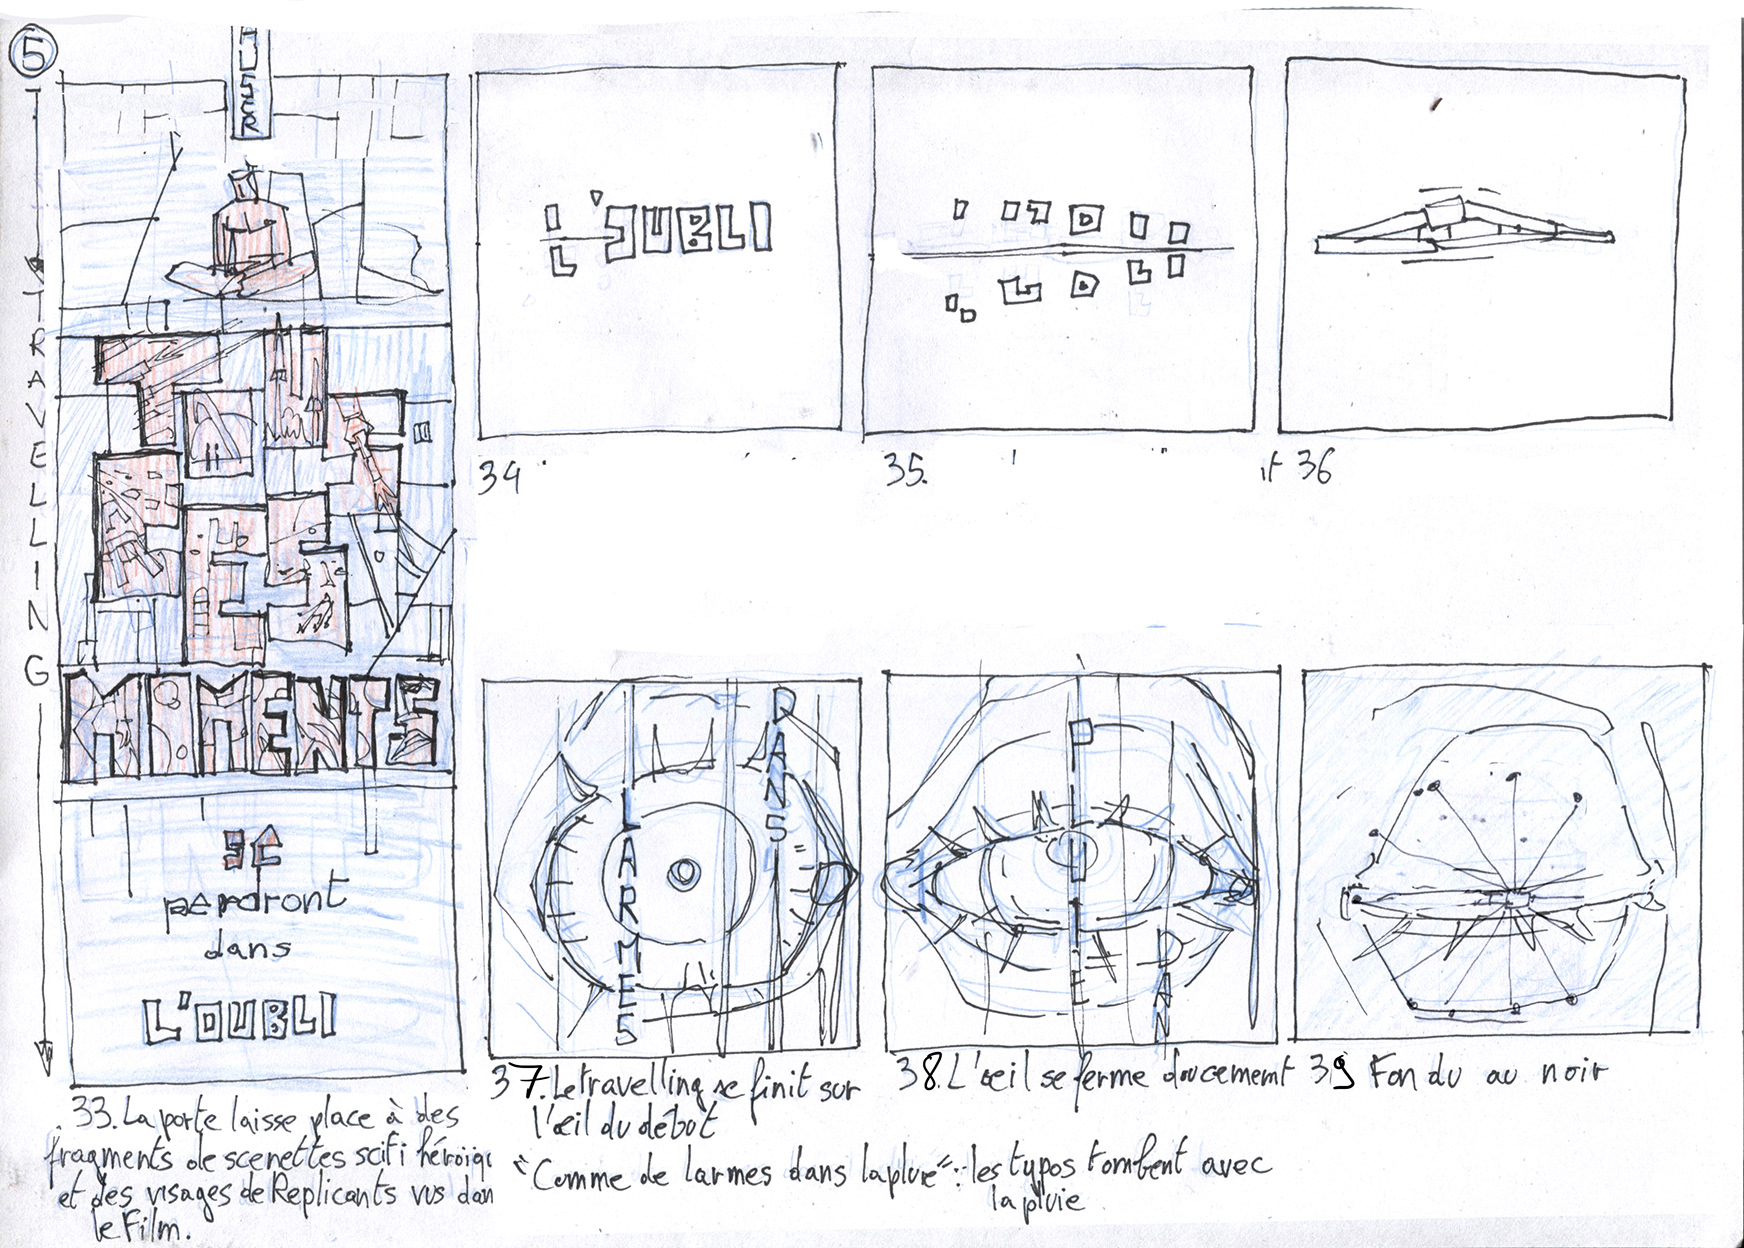 5
TRAVELLING
HUSER
TOUS
CES
MOMENTS
se
perdront
dans
L'OUBLI
33. La porte laisse place à des
fragments de scenettes scifi héroïqu
et des visages de Replicants vus dan
le Film.
L'OUBLI
34
35.
36
LARMES
DANS
37. Le travelling se finit sur
l'œil du début
PLUIE
DAN
38. L'œil se ferme doucement
39 Fondu au noir
"Comme de larmes dans la pluie": les typos tombent avec
la pluie